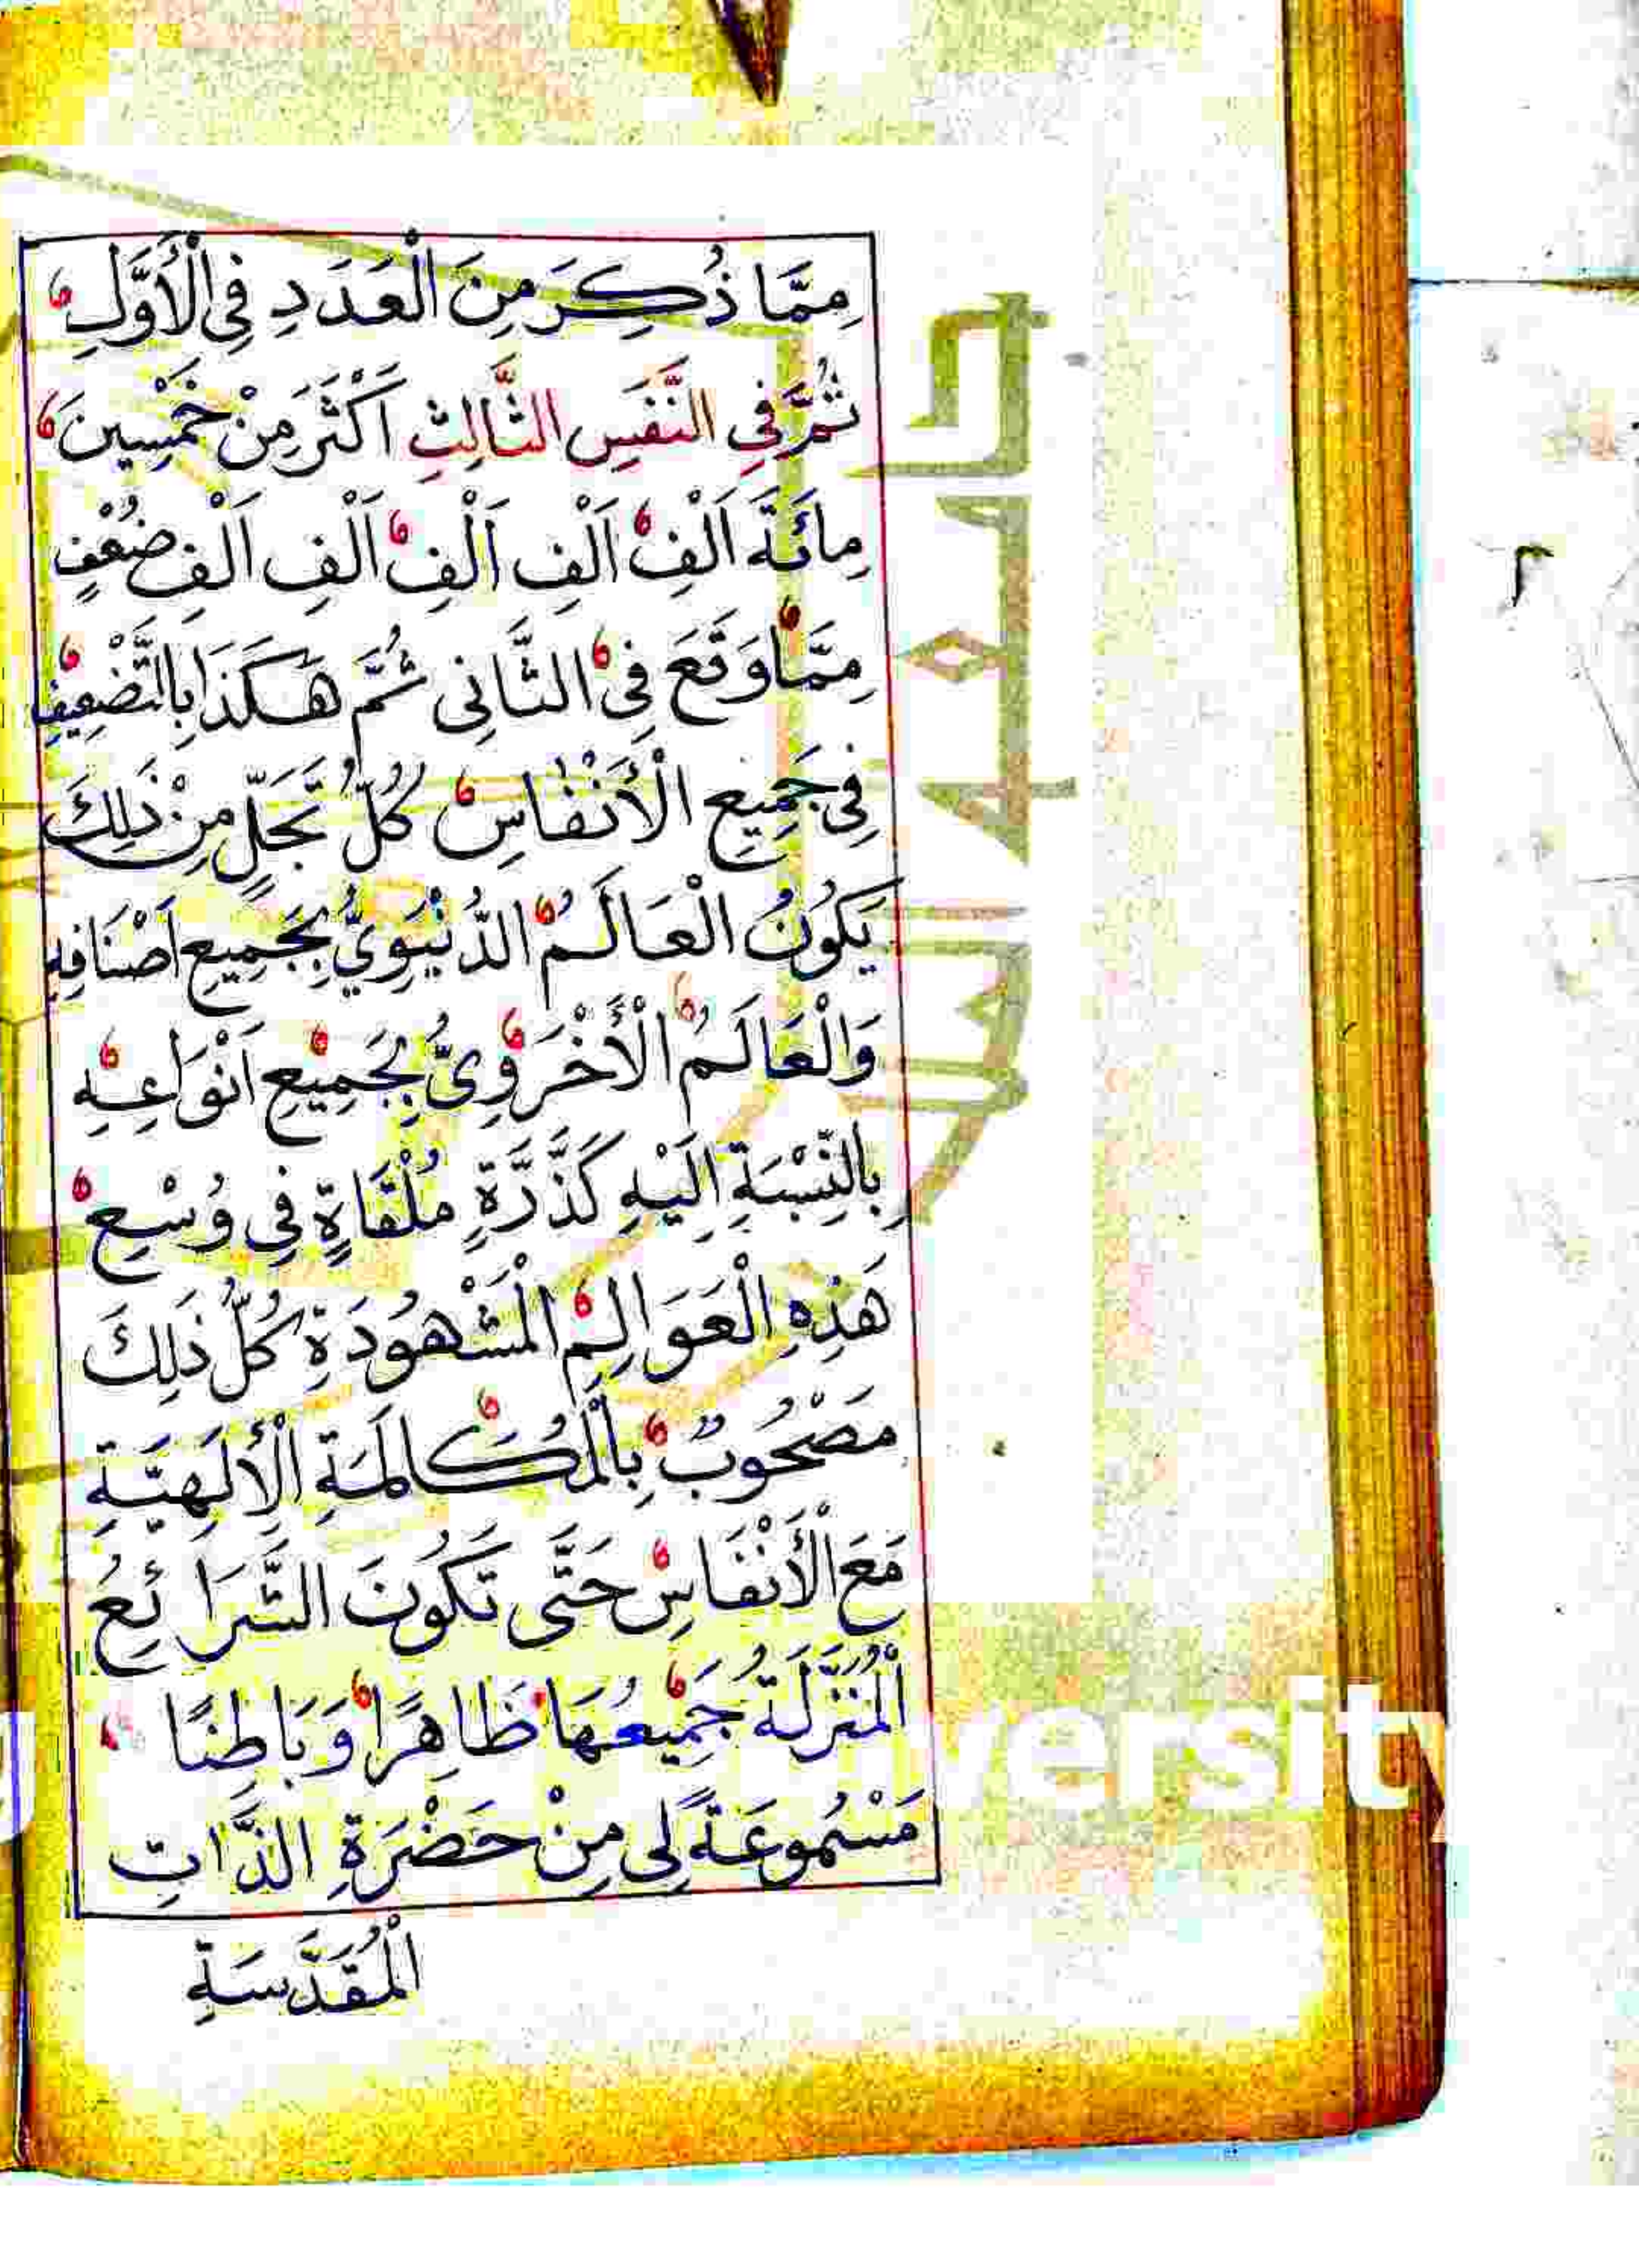 مِمَّا ذُكِرَ مِنَ الْعَدَدِ فِي الْأَوَّلِ
ثُمَّ فِي النَّفَسِ الثَّالِثِ اَكْثَرَ مِنْ خَمْسِينَ
مِائَةَ اَلْفِ اَلْفِ اَلْفِ اَلْفِ اَلْفِ ضُعْفٍ
مِمَّا وَقَعَ فِي الثَّانِى ثُمَّ هَكَذَا بِالتَّضْعِيفِ
فِى جَمِيعِ الْأَنْفَاسِ كُلُّ تَجَلٍّ مِنْ ذَلِكَ
يَكُونُ الْعَالَمُ الدُّنْيَوِيُّ بِجَمِيعِ اَصْنَافِهِ
وَالْعَالَمُ الْأُخْرَوِىُّ بِجَمِيعِ اَنْوَاعِهِ
بِالنِّسْبَةِ اِلَيْهِ كَذَرَّةٍ مُلْقَاةٍ فِي وُسْعِ
هَذِهِ الْعَوَالِمِ الْمَشْهُودَةِ كُلُّ ذَلِكَ
مَصْحُوبٌ بِالْمُكَالَمَةِ الْأِلَهِيَّةِ
مَعَ الْأَنْفَاسِ حَتَّى تَكُونَ الشَّرَائِعُ
الْمُنَزَّلَةُ جَمِيعُهَا ظَاهِرًا وَبَاطِنًا
مَسْمُوعَةً لِى مِنْ حَضْرَةِ الذَّاتِ
الْمُقَدَّسَةِ